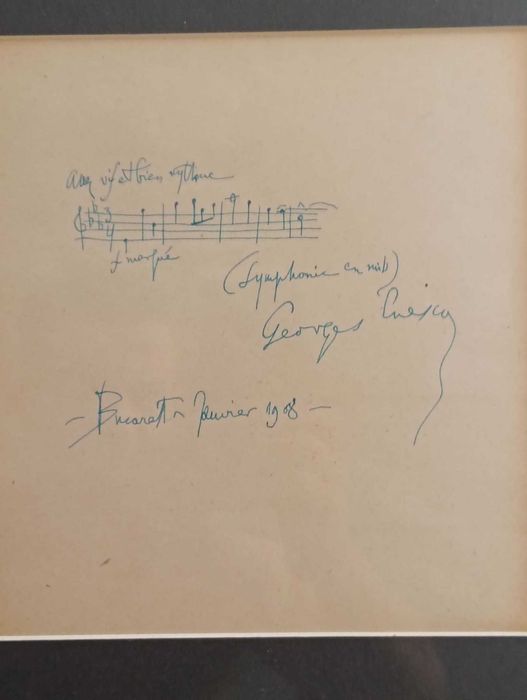 Assez vif et bien rythmé
3
4
f marqué
(Symphonie en mib)
Georges Enesco
— Bucarest Janvier 1908 —